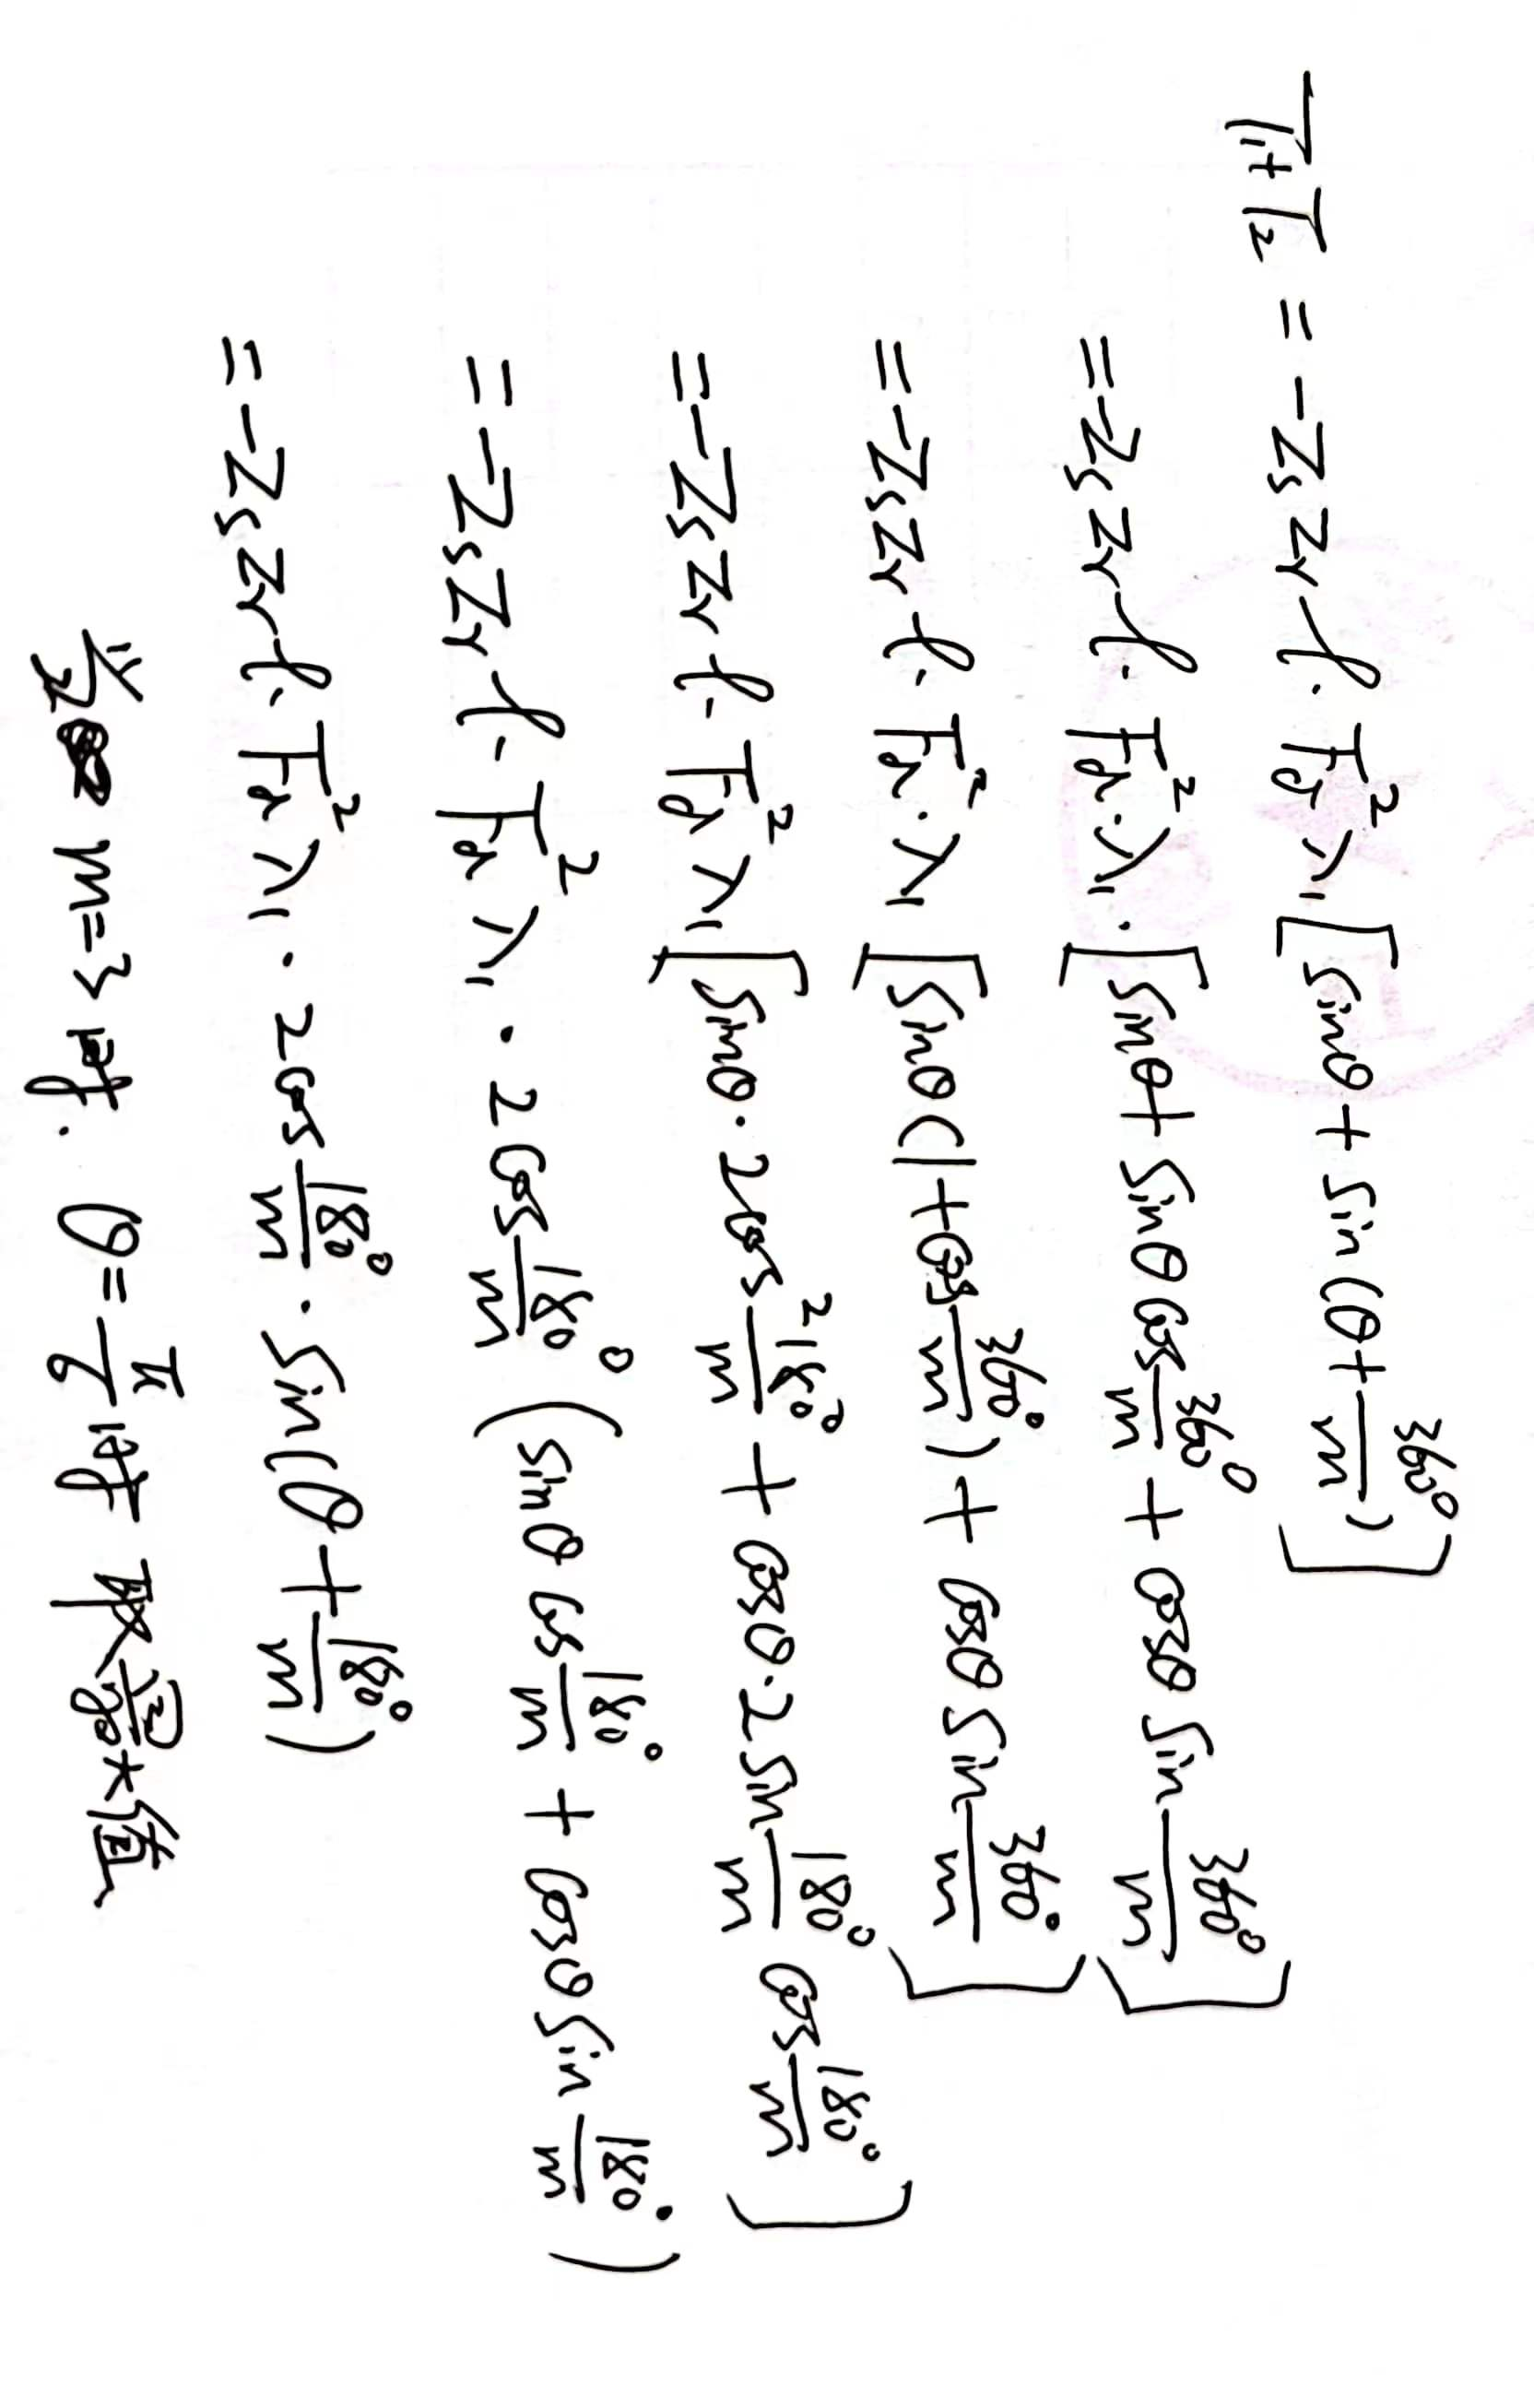 T₁+T₂ = -ZₛZᵣℓ·F_δ²λ₁[sinθ + sin(θ+360°/m)]
= -ZₛZᵣℓ·F_δ²·λ₁·[sinθ + sinθ cos 360°/m + cosθ sin 360°/m]
= -ZₛZᵣℓ·F_δ²·λ₁[sinθ(1+cos 360°/m) + cosθ sin 360°/m]
= -ZₛZᵣℓ·F_δ²λ₁[sinθ·2cos² 180°/m + cosθ·2sin 180°/m cos 180°/m]
= -ZₛZᵣℓ·F_δ²λ₁·2cos 180°/m (sinθ cos 180°/m + cosθ sin 180°/m)
= -ZₛZᵣℓ·F_δ²λ₁·2cos 180°/m·sin(θ+180°/m)
当 m=3时. θ=π/6时 取最大值